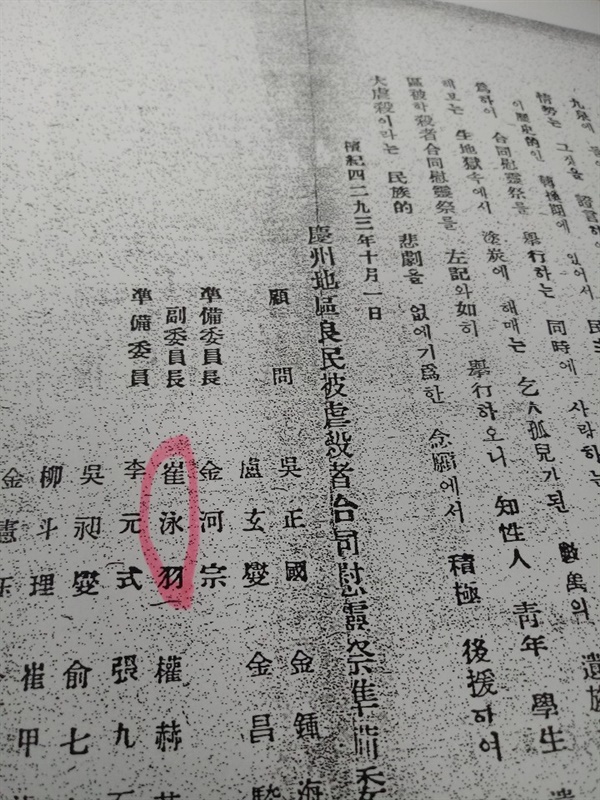 九泉에
情勢는 그것을 證言하
이 歷史的인 轉換期에 있어서 民主
爲하야 合同慰靈祭를 擧行하는 同時에 사랑하는
해보는 生地獄속에서 塗炭에 해매는 乞人孤兒가된 數萬의 遺族
區被虐殺者合同慰靈祭를 左記와如히 擧行하오니 知性人 靑年 學生
大虐殺이라는 民族的 悲劇을 없에기爲한 念願에서 積極 後援하여
檀紀四二九三年十月一日
慶州地區良民被虐殺者合同慰靈祭準備委
顧問 吳正國 金鍾海
盧玄燮 金昌
準備委員長 金河宗
副委員長 崔泳羽 權赫
準備委員 李元式 張九
吳昶燮 俞七
柳斗理 崔甲
金憲